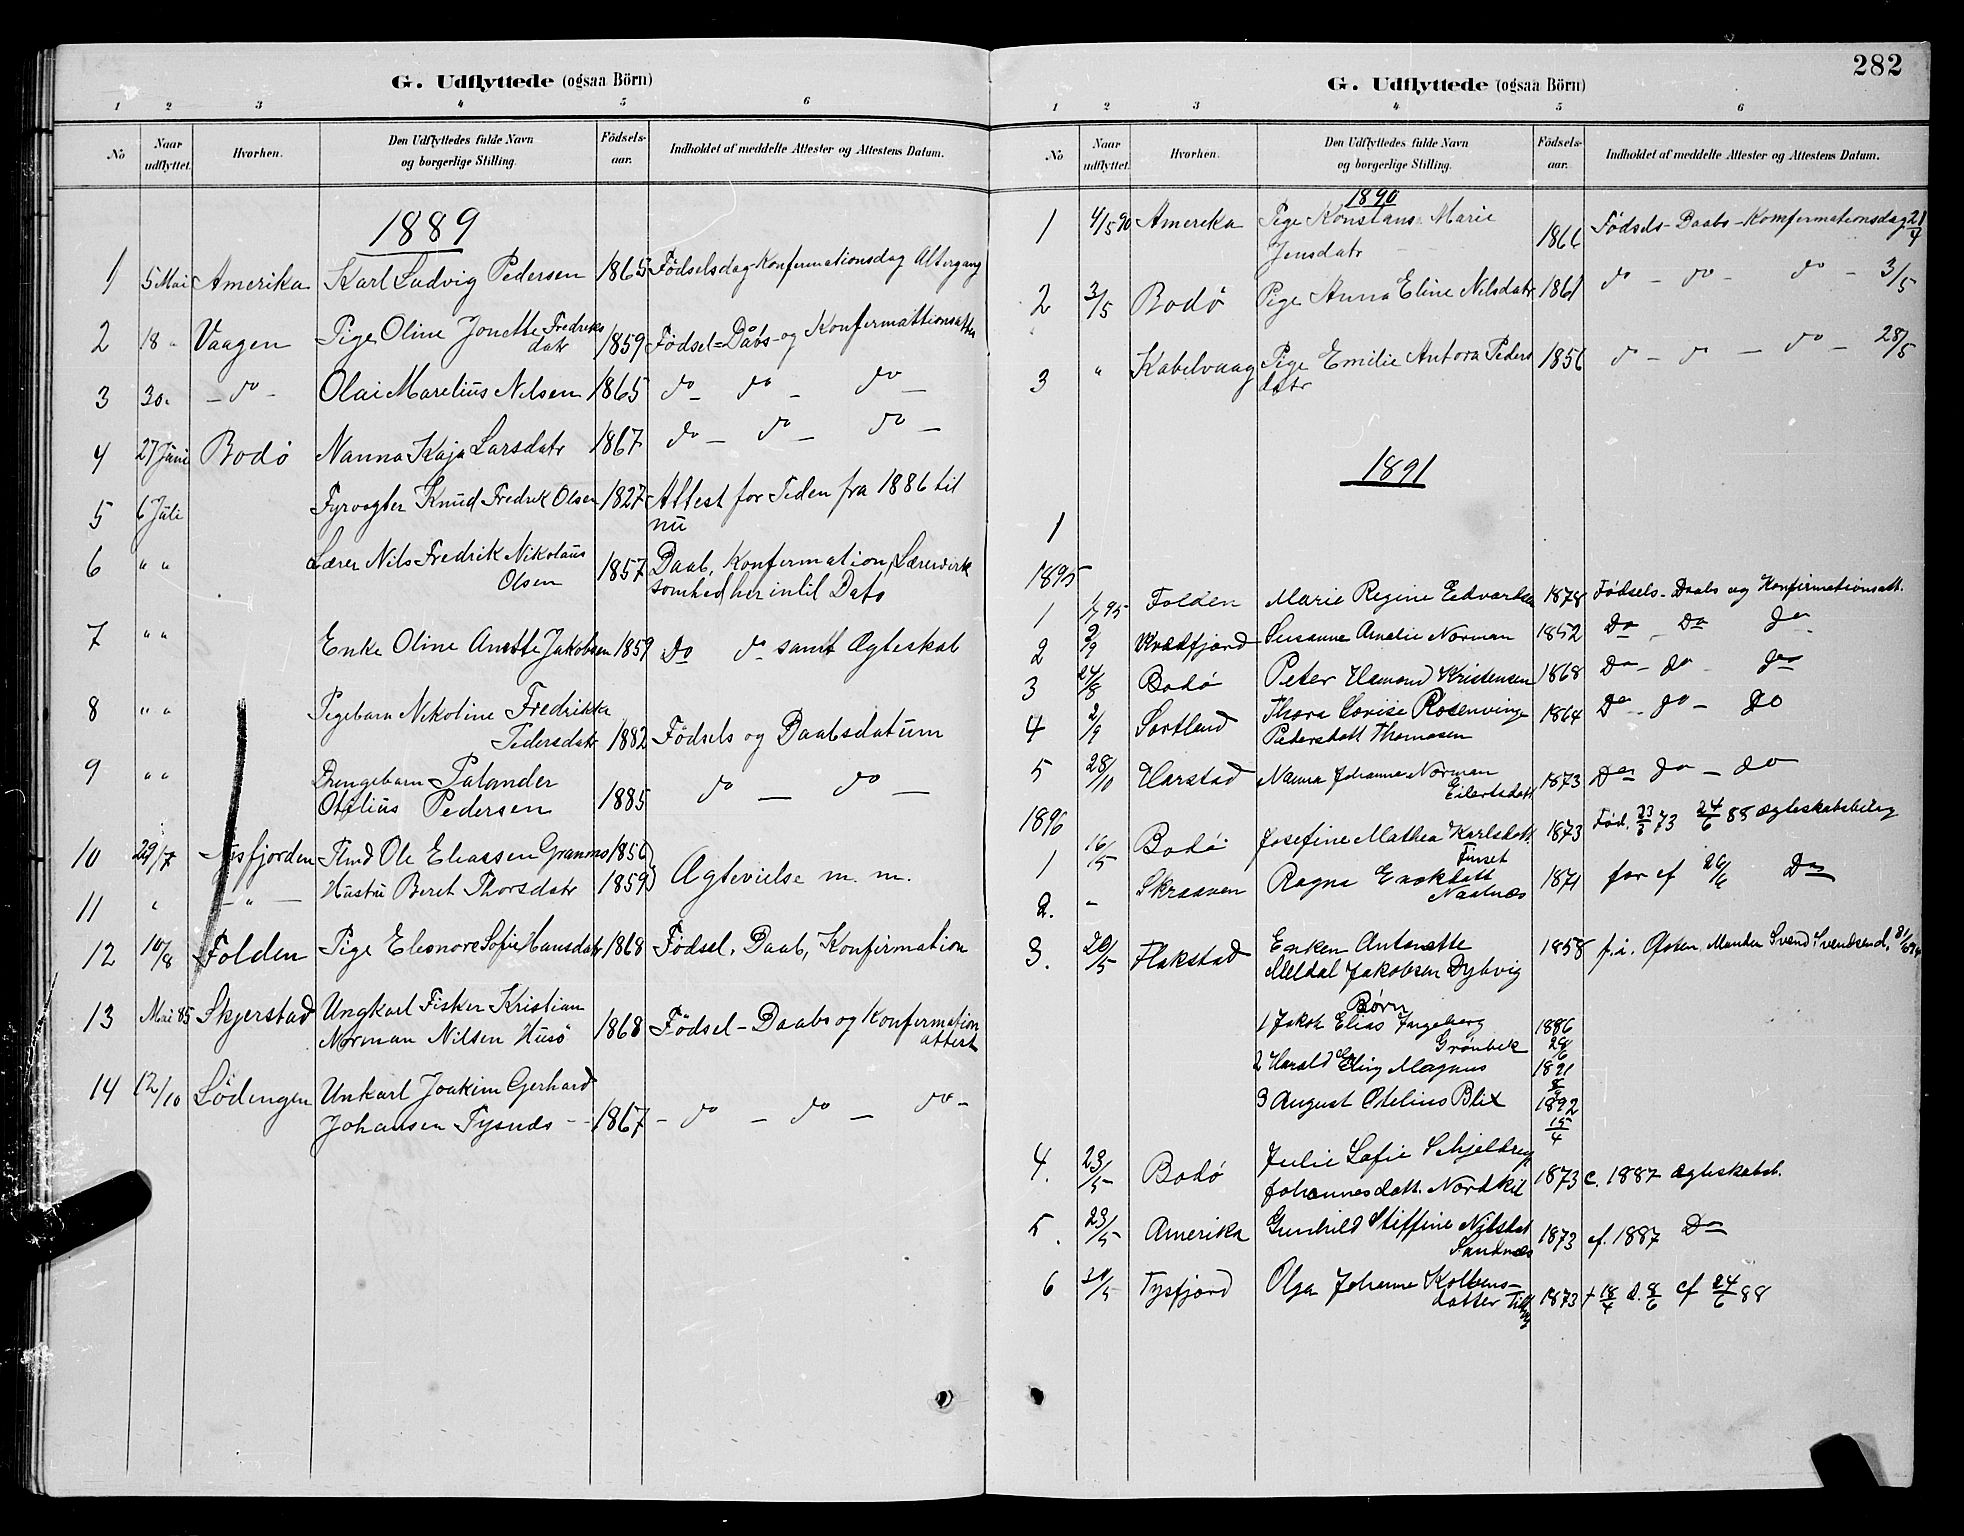 G. Udflyttede (ogsaa Börn)
1 2 3 4 5 6
No Naar udflyttet. Hvorhen. Den Udflyttedes fulde Navn og borgerlige Stilling. Födsels-aar. Indholdet af meddelte Attester og Attestens Datum.
1889
1 5 Mai Amerika Karl Ludvig Pedersen 1865 Födselsdag Konfermationsdag Altergang
2 18 " Vaagen Pige Oline Jonette Fredriks
datr 1859 Födsel= Dåbs- og Konfermattionsattest
3 30 " - do - Olai Marelius Nilsen 1865 do - do - do -
4 27 Juni Bodø Nanna Kaja Larsdatr 1867 do - do - do -
5 6 Juli Fyrvogter Knud Fredrik Olsen 1827 Attest for Tiden fra 1886 til
nu
6 " " Lærer Nils Fredrik Nikolaus
Olsen 1857 Daab, Konfermation, Lærervirk
somhed her intil Dato
7 " " Enke Oline Anette Jakobsen 1859 Do do samt Ægteskab
8 " " Pigebarn Nikoline Fredrikke
Pedersdatr 1882 Födsels og Daabsdatum
9 " " Drengebarn Palander
Otelius Pedersen 1885 do - do -
10 29/7 Misfjorden Ole Eliassen Grannes 1856
11 " - " - Hustru Beret Thorsdatr 1859 Ægtevielse m. m.
12 10/8 Folden Pige Eleonore Sofie Hansdatr 1868 Födsel, Daab, Konfirmation
13 Mai 85 Skjerstad Ungkarl Fisker Kristian
Norman Nilsen Husö 1868 Födsel - Daabs og Konfermation
attest
14 12/10 Lödingen Unkarl Joakim Gerhard
Johansen Tysnes - 1867 - do - do - do -
282
G. Udflyttede (ogsaa Börn)
1 2 3 4 5 6
No Naar udflyttet. Hvorhen. Den Udflyttedes fulde Navn og borgerlige Stilling. Födsels-aar. Indholdet af meddelte Attester og Attestens Datum.
1890
1 4/5 90 Amerika Pige Konstans Marie
Jensdatr 1866 Födsels- Daabs- Komfermationsdag 21/4
2 3/5 Bodø Pige Anna Eline Nilsdatr 1861 do - do - do - 3/5
3 " Kabelvaag Pige Emilie Antora Peders
datr 1856 do - do - do - 28/5
1891
1
1895
1 1/7 95 Folden Marie Regine Edvardsen 1878 Födsels- Daabs og Konfirmationsatt.
2 2/9 Kvædfjord Susanne Amalie Norman 1852 Do - Do do
3 24/8 Bodø Peter Edmond Kristensen 1868 Do - do - do
4 2/9 Sortland Thora Lovise Rosenvinge
Pedersdatt Thomasen 1864 Do - do - do
5 28/10 Harstad Nanna Johanne Norman
Eilertsdatt 1873 Do do - do
1896
1 16/5 Bodø Josefine Mathea Karlsdatt.
Finset 1873 Föd. 23/3 73 24/6 88 Ægteskabsbetg
2. " Skraaven Ragna Enokdatt
Naalnæs 1871 for cf 26/6 Do
3. 20/5 Flakstad Enken Antonette
Meldal Jakobsen Dybvig 1858
Børn
1 Jakob Elias Ingeberg
Grønbek 1886
28/6
2 Harald Eling Magnus 1891
8/
3 August Otelius Blix 1892
15/4
4. 23/5 Bodø Julie Sofie Schjeldrup
Johannesdatt. Nordkil 1873 c. 1887 Ægteskabsb.
5. 23/5 Amerika Gunhild Steffine Nilsdat
Sandnæs 1873 cf. 1887 Do
6 30/5 Tysfjord Olga Johanne Kolbens-
datter 1873 + 18/4 d. 8/6 cf 24/6 88